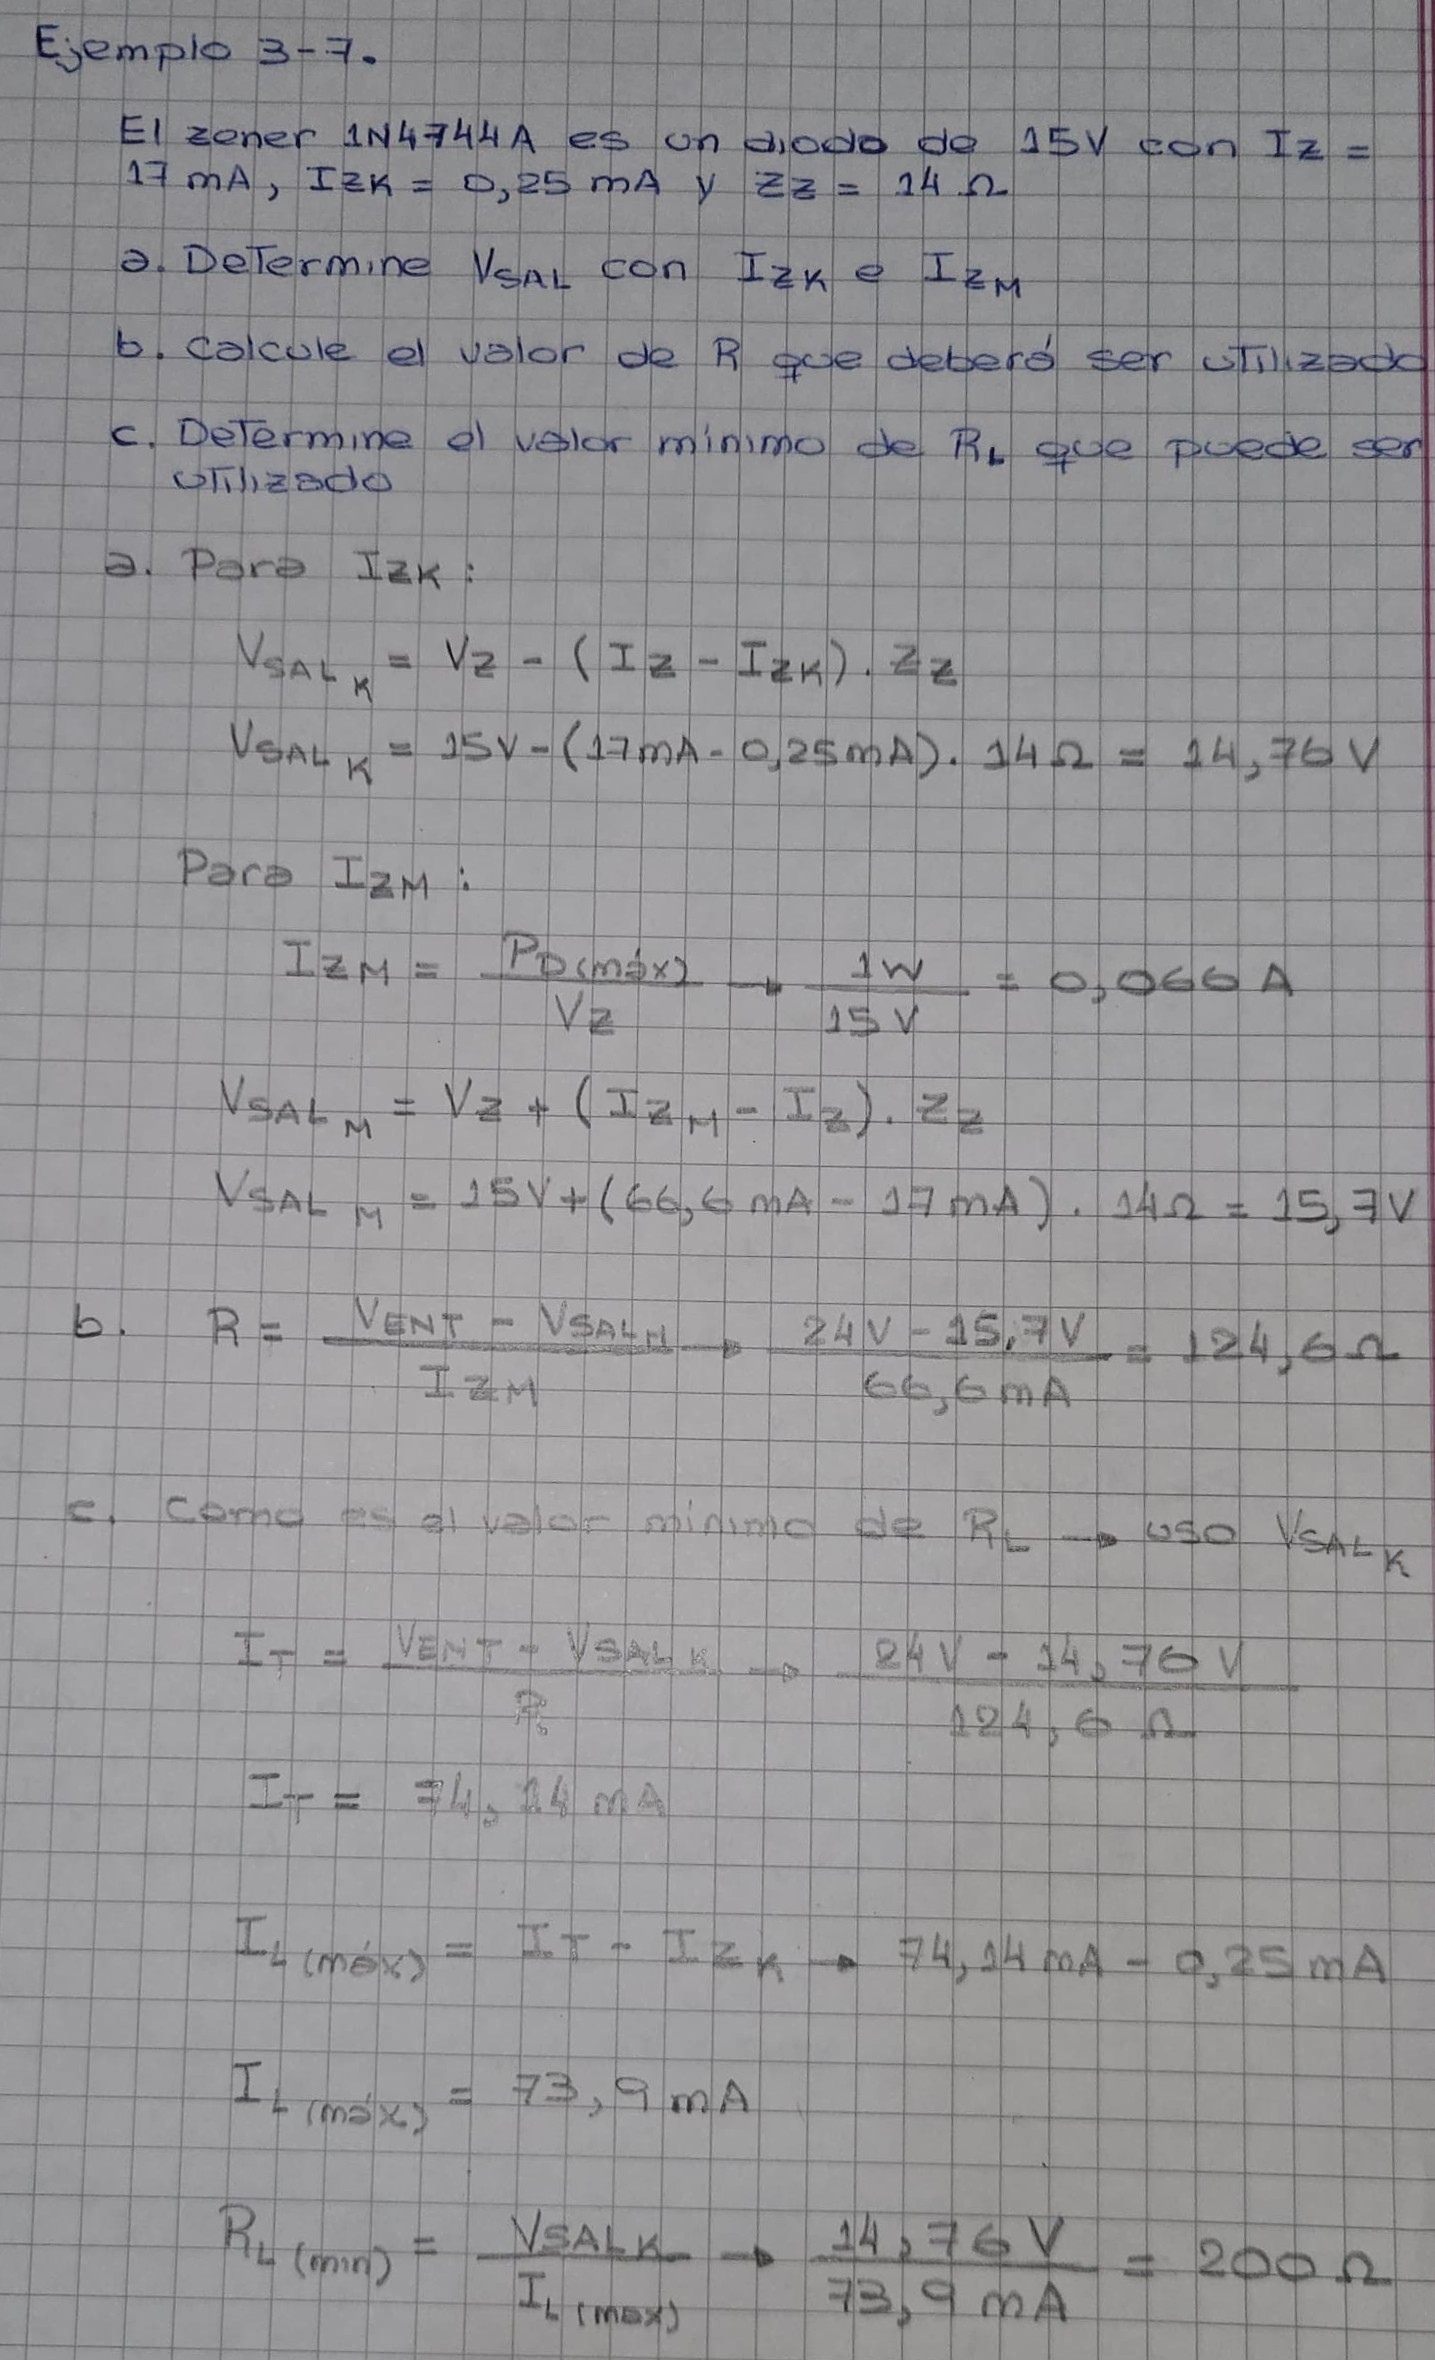 Ejemplo 3-7.
El zener 1N4744A es un diodo de 15V con Iz =
17 mA, IzK = 0,25 mA y Zz = 14 Ω
a. Determine VSAL con IzK e IzM
b. Calcule el valor de R que deberá ser utilizado
c. Determine el valor mínimo de RL que puede ser
utilizado
a. Para IzK :
VSALK = Vz - (Iz - IzK) . Zz
VSALK = 15V - (17mA - 0,25mA) . 14Ω = 14,76 V
Para IzM :
IzM = PD(máx) / Vz → 1W / 15V = 0,066 A
VSALM = Vz + (IzM - Iz) . Zz
VSALM = 15V + (66,6 mA - 17 mA) . 14Ω = 15,7V
b. R = VENT - VSALM / IzM → 24V - 15,7V / 66,6mA = 124,6Ω
c. Como es el valor mínimo de RL → uso VSALK
IT = VENT - VSALK / R → 24V - 14,76 V / 124,6 Ω
IT = 74,14 mA
IL(máx) = IT - IzK → 74,14 mA - 0,25 mA
IL(máx) = 73,9 mA
RL(min) = VSALK / IL(max) → 14,76 V / 73,9 mA = 200 Ω